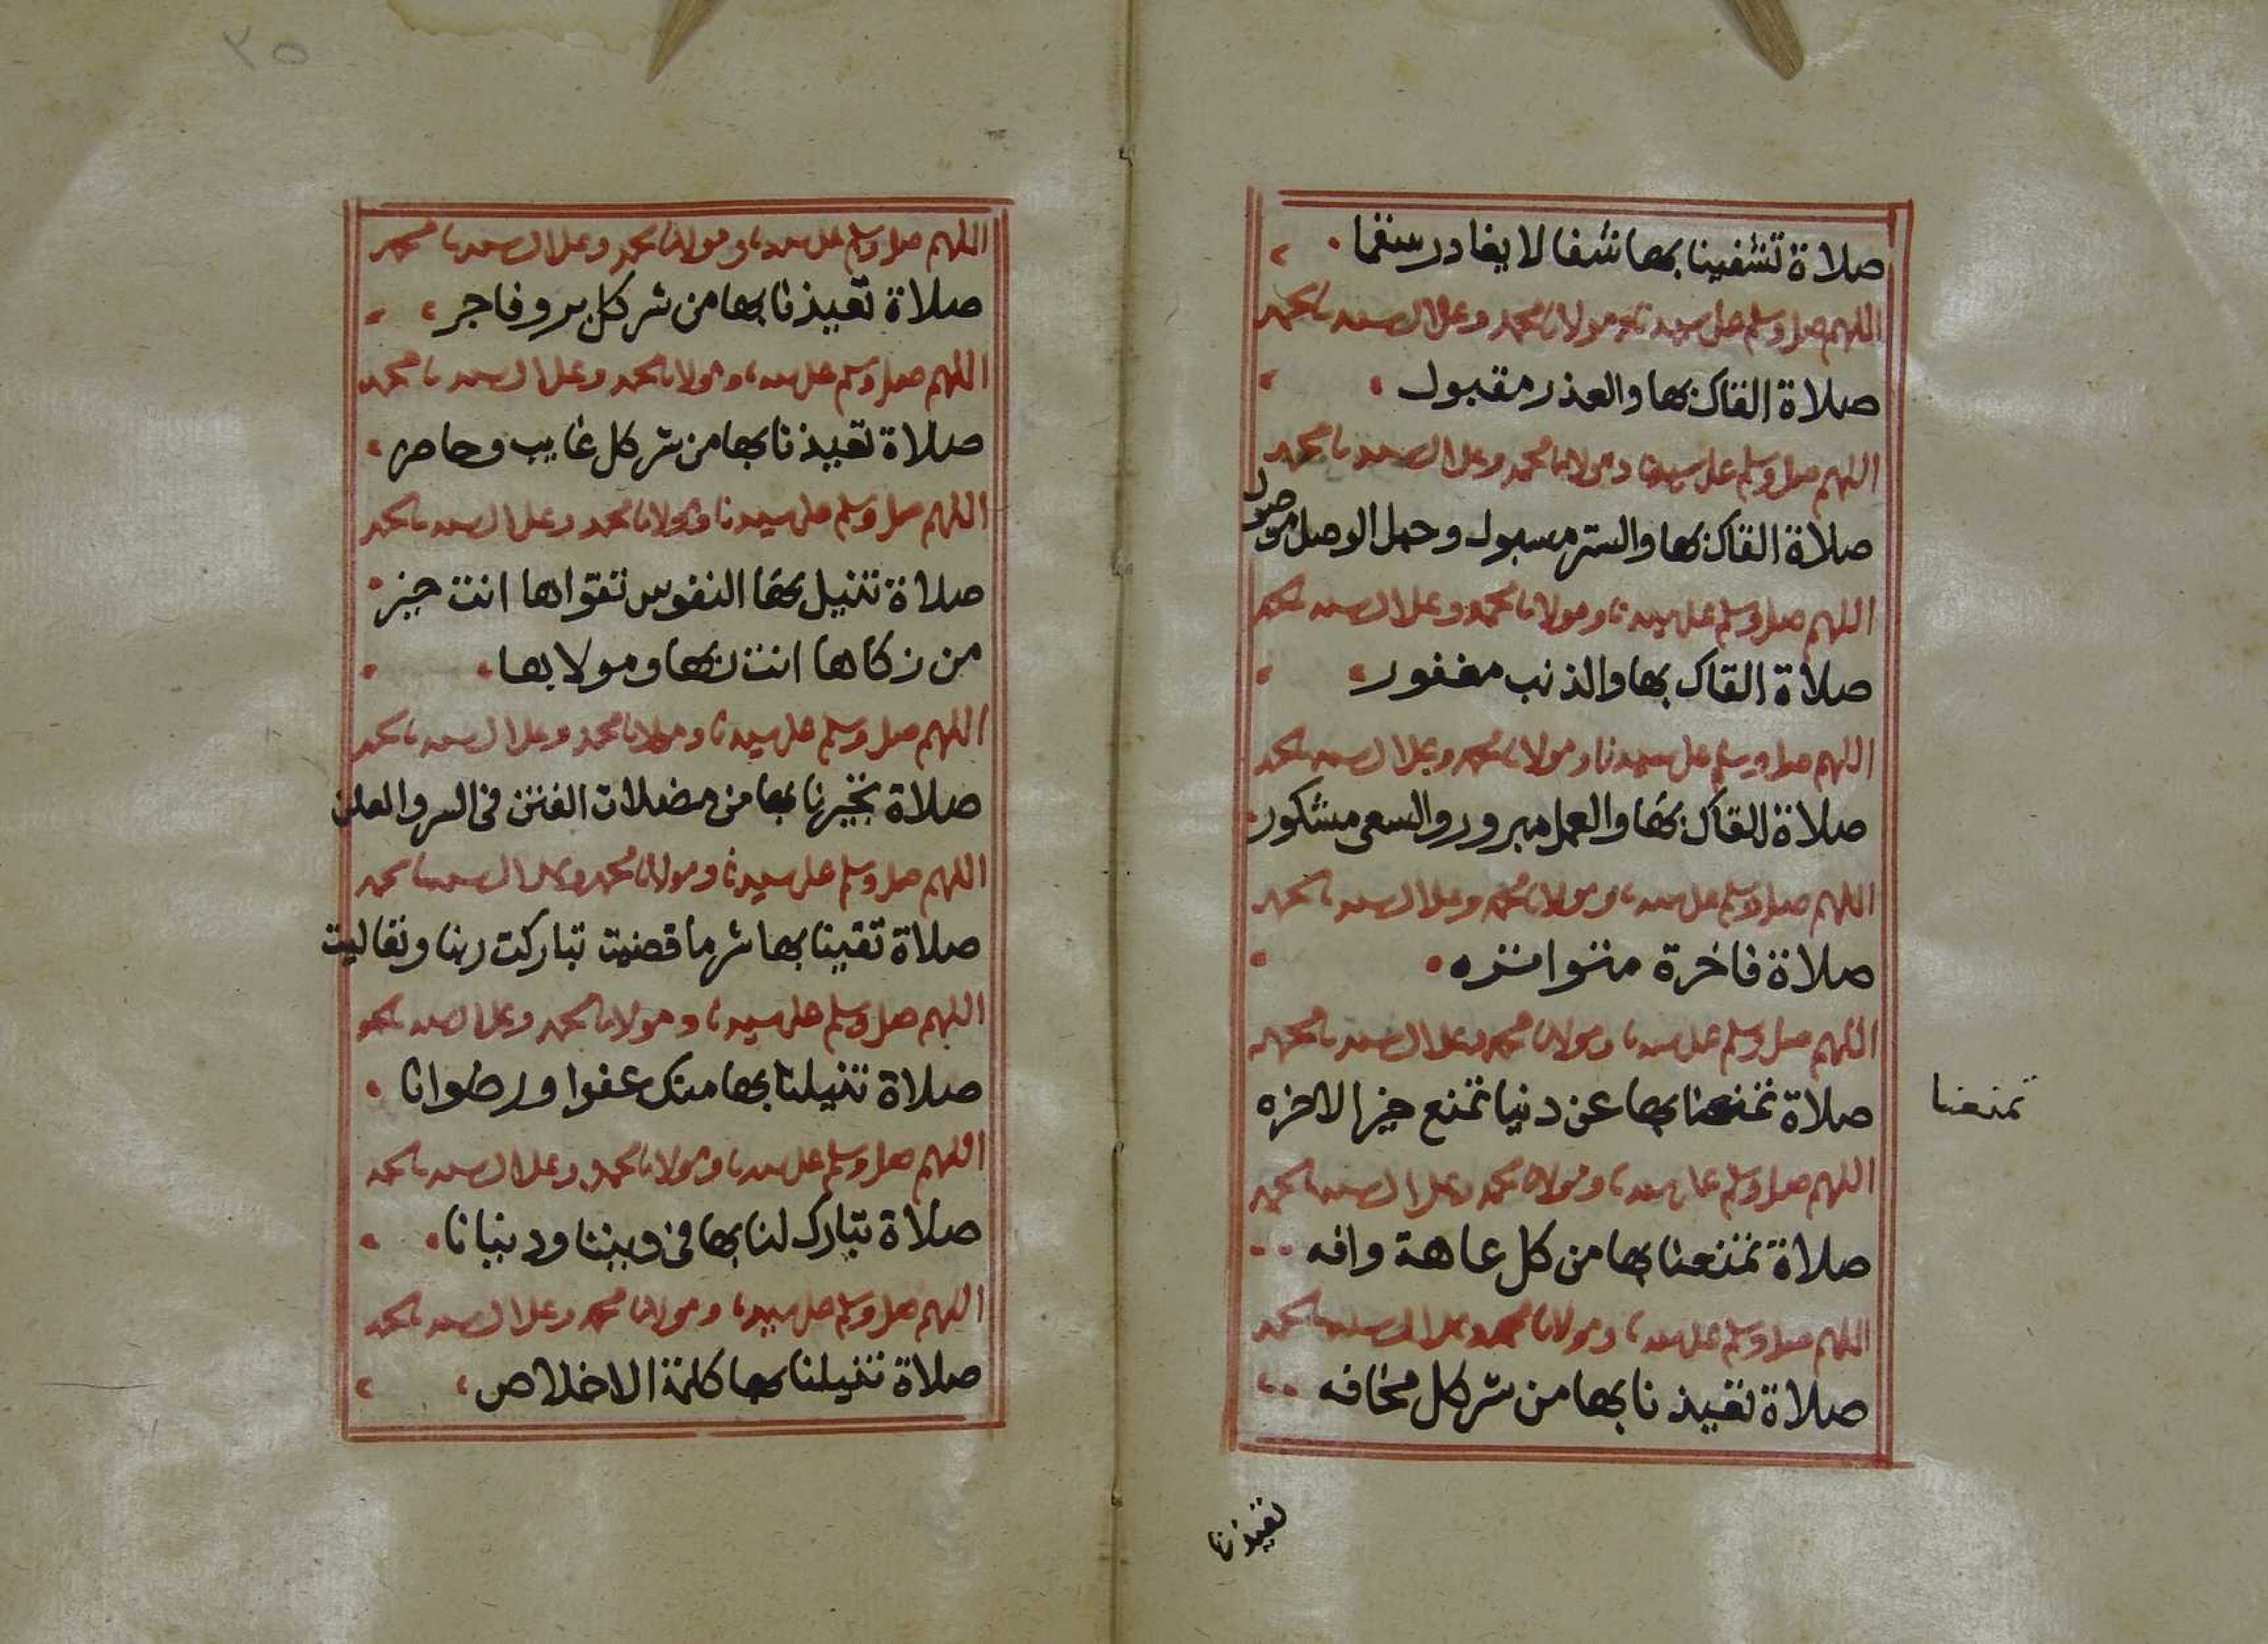 صلاة تشفينا بها شفا لا يغادر سقما
اللهم صل وسلم على سيدنا ومولانا محمد وعلى ال سيدنا محمد
صلاة القاك بها والعذر مقبول
اللهم صل وسلم على سيدنا ومولانا محمد وعلى ال سيدنا محمد
صلاة القاك بها والستر مسبول وحبل الوصل موصول
اللهم صل وسلم على سيدنا ومولانا محمد وعلى ال سيدنا محمد
صلاة القاك بها والذنب مغفور
اللهم صل وسلم على سيدنا ومولانا محمد وعلى ال سيدنا محمد
صلاة القاك بها والعمل مبرور والسعى مشكور
اللهم صل وسلم على سيدنا ومولانا محمد وعلى ال سيدنا محمد
صلاة فاخرة متواتره
اللهم صل وسلم على سيدنا ومولانا محمد وعلى ال سيدنا محمد
صلاة تمنعنا بها عن دنيا تمنع خير الاخره
تمنعنا
اللهم صل وسلم على سيدنا ومولانا محمد وعلى ال سيدنا محمد
صلاة تمنعنا بها من كل عاهة وافه
اللهم صل وسلم على سيدنا ومولانا محمد وعلى ال سيدنا محمد
صلاة تعيذنا بها من شر كل مخافه
تعيذنا
٢٥
اللهم صل وسلم على سيدنا ومولانا محمد وعلى ال سيدنا محمد
صلاة تعيذنا بها من شر كل بر وفاجر
اللهم صل وسلم على سيدنا ومولانا محمد وعلى ال سيدنا محمد
صلاة تعيذنا بها من شر كل غايب وحاضر
اللهم صل وسلم على سيدنا ومولانا محمد وعلى ال سيدنا محمد
صلاة تنيل بها النفوس تقواها انت خير
من زكاها انت ربها ومولاها
اللهم صل وسلم على سيدنا ومولانا محمد وعلى ال سيدنا محمد
صلاة تجيرنا بها من مضلات الفتن فى السر والعلن
اللهم صل وسلم على سيدنا ومولانا محمد وعلى ال سيدنا محمد
صلاة تقينا بها شر ما قضيت تباركت ربنا وتعاليت
اللهم صل وسلم على سيدنا ومولانا محمد وعلى ال سيدنا محمد
صلاة تنيلنا بها منك عفوا ورضوانا
اللهم صل وسلم على سيدنا ومولانا محمد وعلى ال سيدنا محمد
صلاة تبارك لنا بها فى ديننا ودنيانا
اللهم صل وسلم على سيدنا ومولانا محمد وعلى ال سيدنا محمد
صلاة تنيلنا بها كلمة الاخلاص